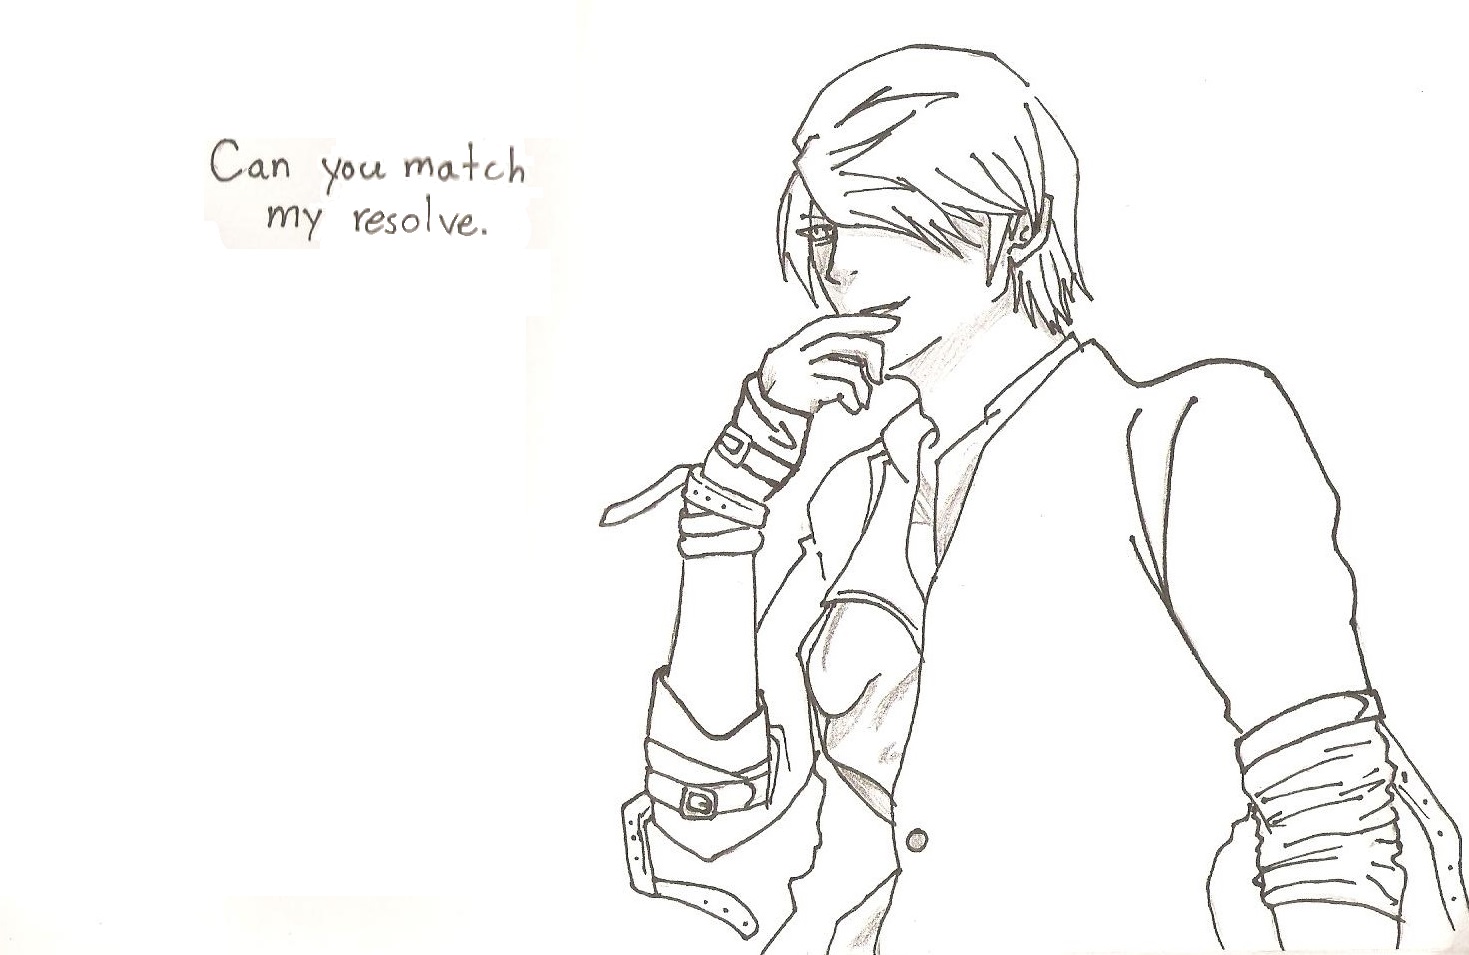 Can you match
my resolve.